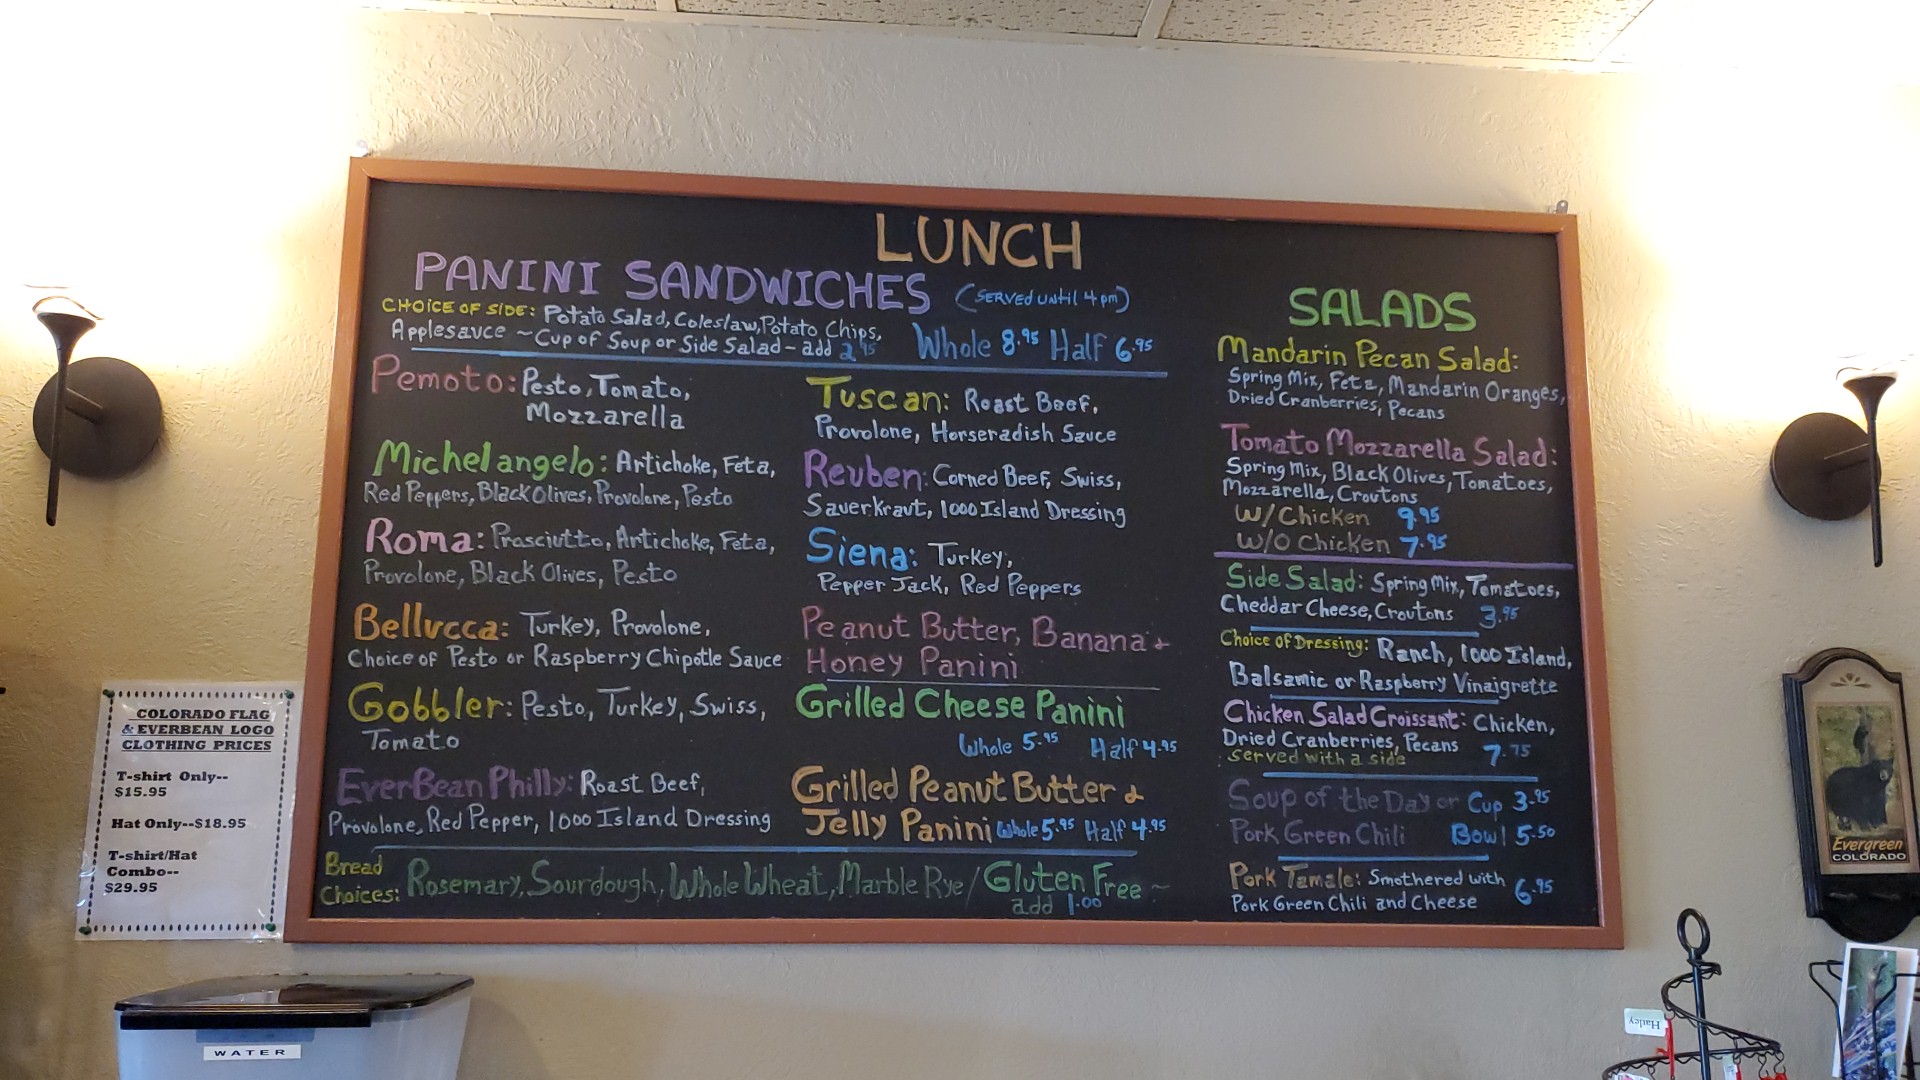 LUNCH
PANINI SANDWICHES (SERVED UNTIL 4 pm)
CHOICE OF SIDE: Potato Salad, Coleslaw, Potato Chips,
Applesauce ~ Cup of Soup or Side Salad - add 2.95
Whole 8.95 Half 6.95
Pemoto: Pesto, Tomato,
Mozzarella
Michelangelo: Artichoke, Feta,
Red Peppers, Black Olives, Provolone, Pesto
Roma: Prosciutto, Artichoke, Feta,
Provolone, Black Olives, Pesto
Bellucca: Turkey, Provolone,
Choice of Pesto or Raspberry Chipotle Sauce
Gobbler: Pesto, Turkey, Swiss,
Tomato
EverBean Philly: Roast Beef,
Provolone, Red Pepper, 1000 Island Dressing
Tuscan: Roast Beef,
Provolone, Horseradish Sauce
Reuben: Corned Beef, Swiss,
Sauerkraut, 1000 Island Dressing
Siena: Turkey,
Pepper Jack, Red Peppers
Peanut Butter, Banana &
Honey Panini
Grilled Cheese Panini
Whole 5.95 Half 4.95
Grilled Peanut Butter &
Jelly Panini Whole 5.95 Half 4.95
Bread
Choices: Rosemary, Sourdough, Whole Wheat, Marble Rye / Gluten Free ~
add 1.00
SALADS
Mandarin Pecan Salad:
Spring Mix, Feta, Mandarin Oranges,
Dried Cranberries, Pecans
Tomato Mozzarella Salad:
Spring Mix, Black Olives, Tomatoes,
Mozzarella, Croutons
W/ Chicken 9.95
W/O Chicken 7.95
Side Salad: Spring Mix, Tomatoes,
Cheddar Cheese, Croutons 3.95
Choice of Dressing: Ranch, 1000 Island,
Balsamic or Raspberry Vinaigrette
Chicken Salad Croissant: Chicken,
Dried Cranberries, Pecans 7.75
served with a side
Soup of the Day or Cup 3.95
Pork Green Chili Bowl 5.50
Pork Tamale: Smothered with 6.95
Pork Green Chili and Cheese
COLORADO FLAG
& EVERBEAN LOGO
CLOTHING PRICES
T-shirt Only--
$15.95
Hat Only--$18.95
T-shirt/Hat
Combo--
$29.95
WATER
Evergreen
COLORADO
Hailey